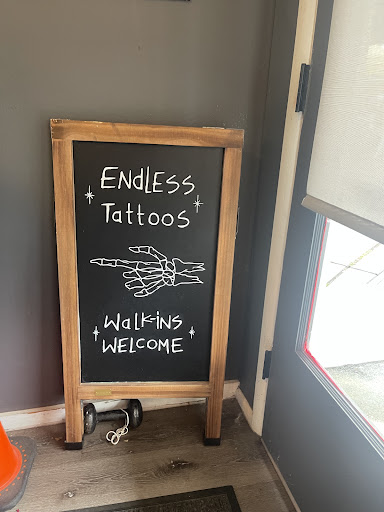 ENDLESS
Tattoos
Walk-ins
WELCOME